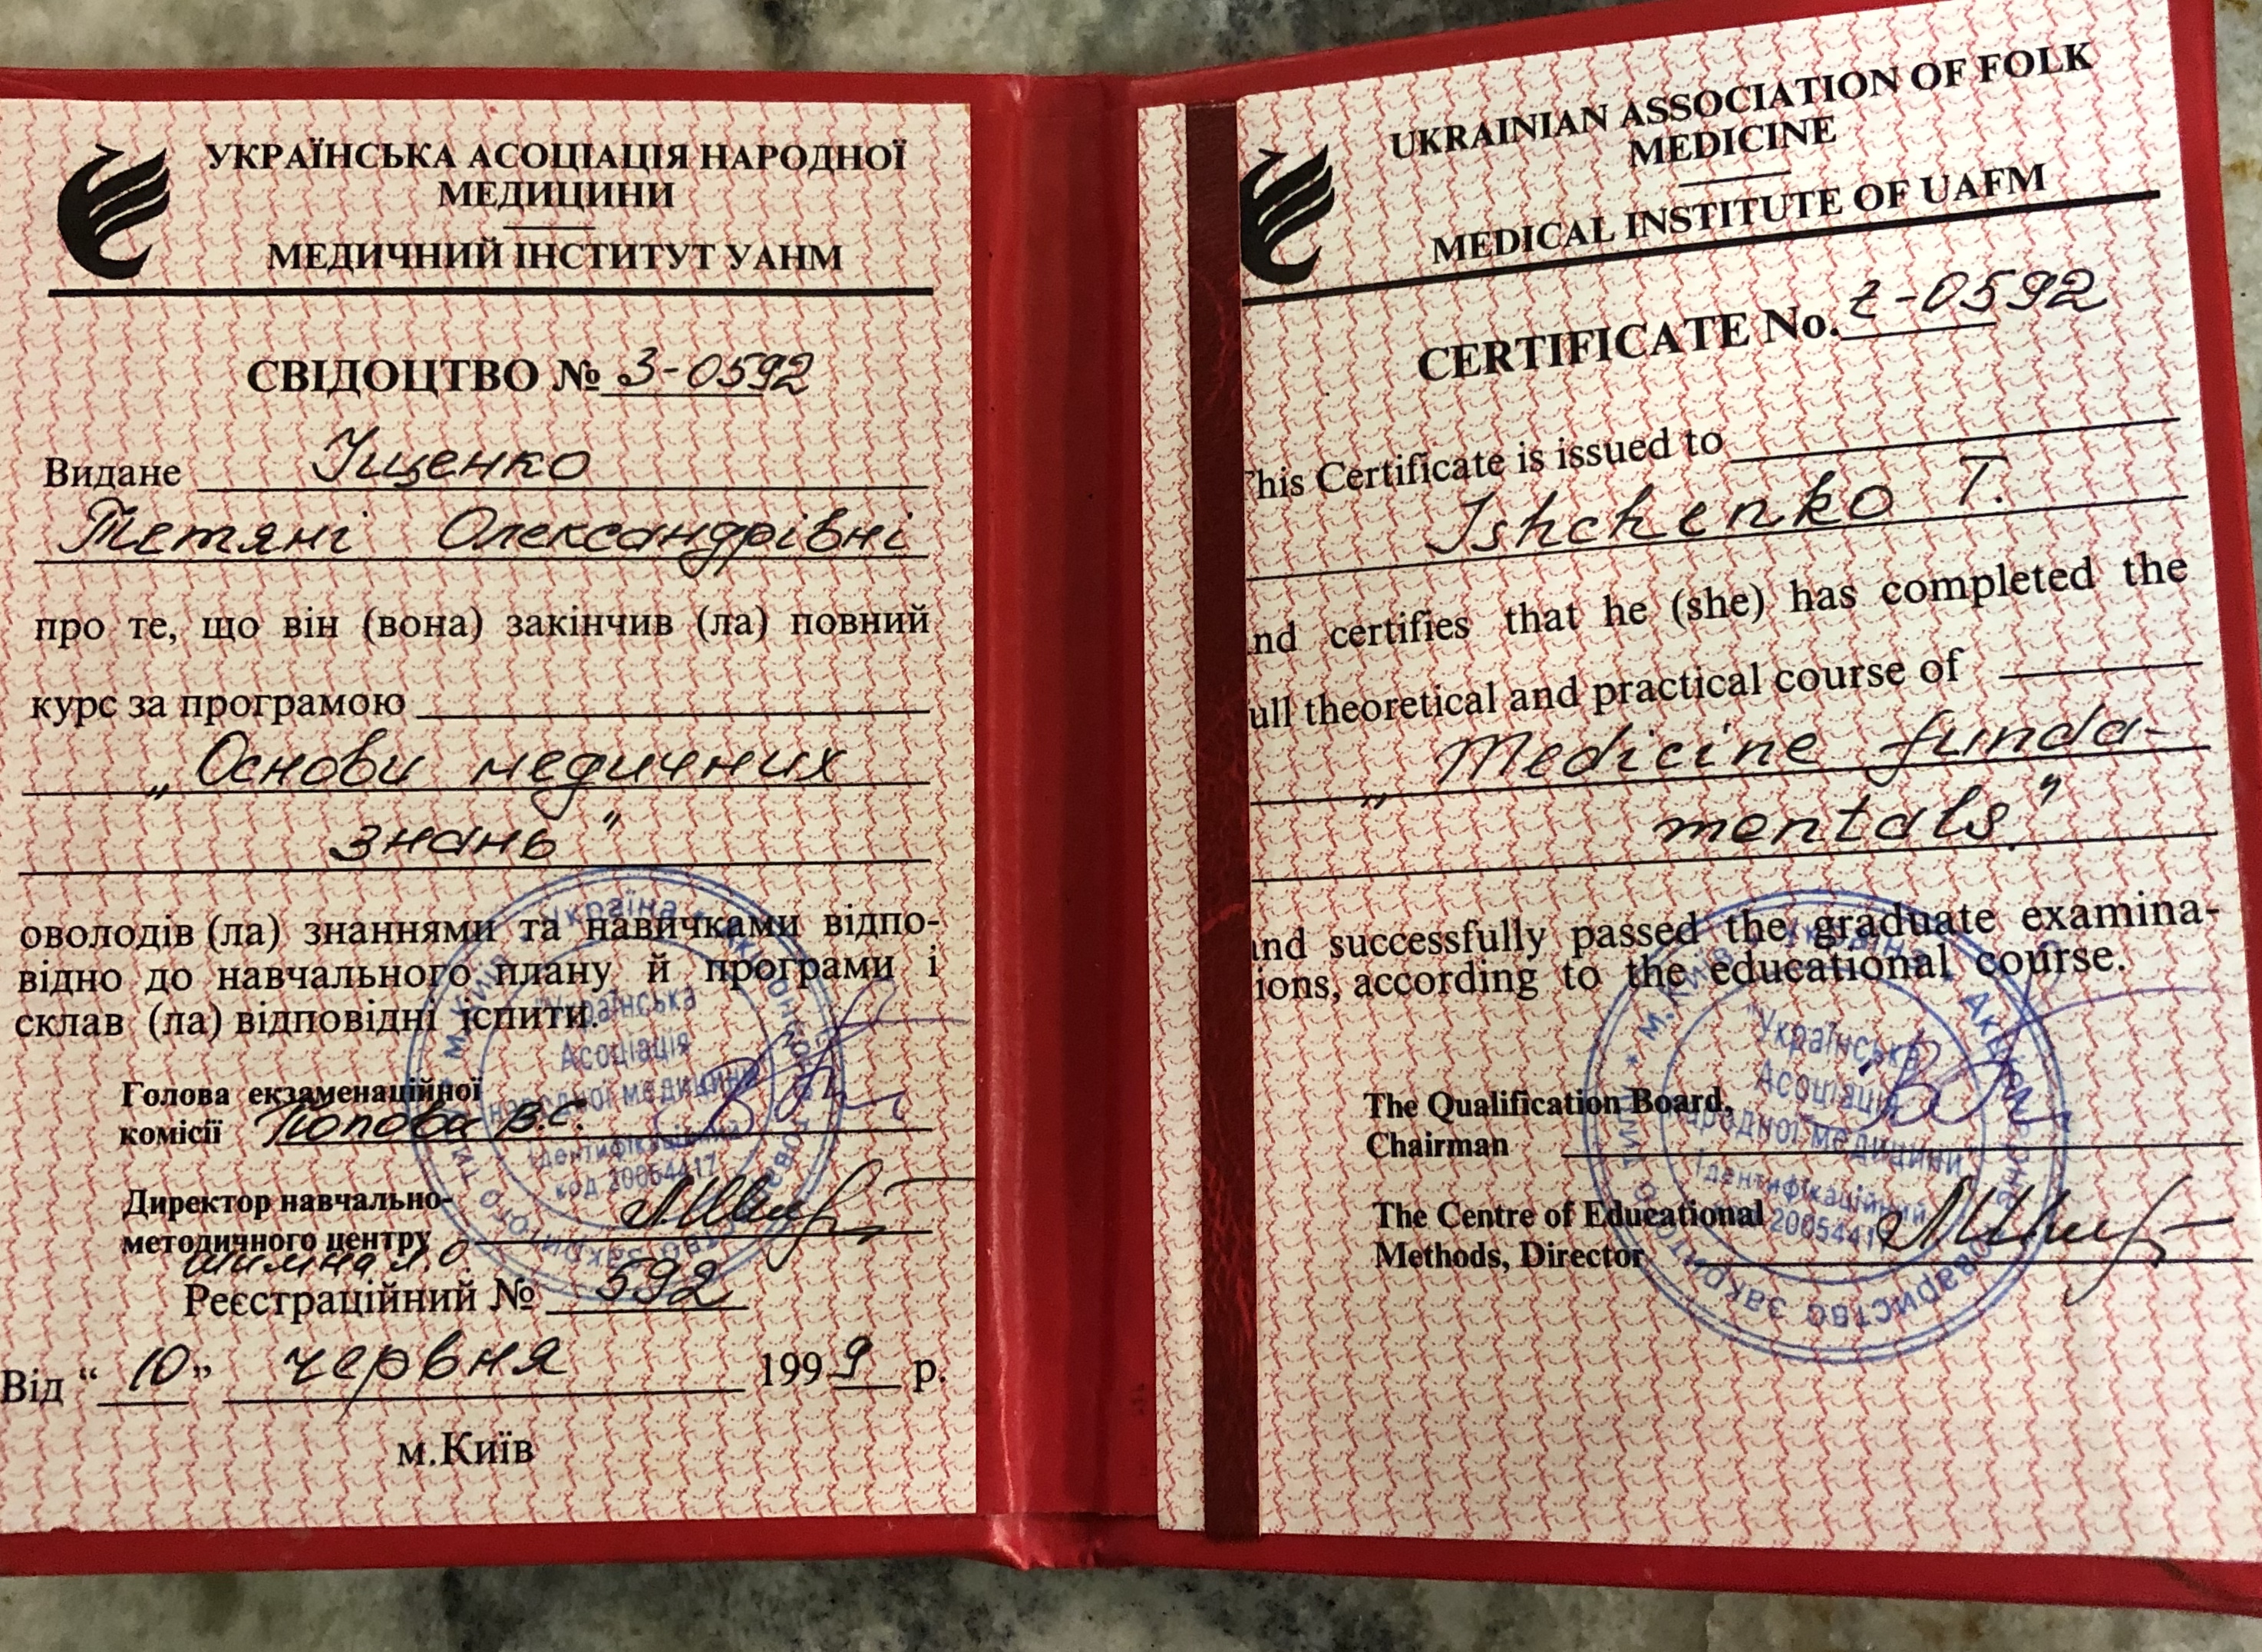 УКРАЇНСЬКА АСОЦІАЦІЯ НАРОДНОЇ
МЕДИЦИНИ
МЕДИЧНИЙ ІНСТИТУТ УАНМ
СВІДОЦТВО № З-0592
Видане Іщенко
Тетяні Олександрівні
про те, що він (вона) закінчив (ла) повний
курс за програмою
„Основи медичних
знань"
оволодів (ла) знаннями та навичками відпо-
відно до навчального плану й програми і
склав (ла) відповідні іспити.
Голова екзаменаційної
комісії Попова В.С.
Директор навчально-
методичного центру
Шимна Л.О.
Реєстраційний № 592
Від "10" червня 1999 р.
м.Київ
Україна * м.Київ *
"Українська
Асоціація
народної медицини"
Ідентифікаційний
код 20054417
UKRAINIAN ASSOCIATION OF FOLK
MEDICINE
MEDICAL INSTITUTE OF UAFM
CERTIFICATE No. Z-0592
his Certificate is issued to
Ishchenko T.
nd certifies that he (she) has completed the
ull theoretical and practical course of
„Medicine funda-
mentals."
and successfully passed the graduate examina-
ions, according to the educational course.
The Qualification Board,
Chairman
The Centre of Educational
Methods, Director
"Українська
Асоціація
народної медицини"
Ідентифікаційний
20054417